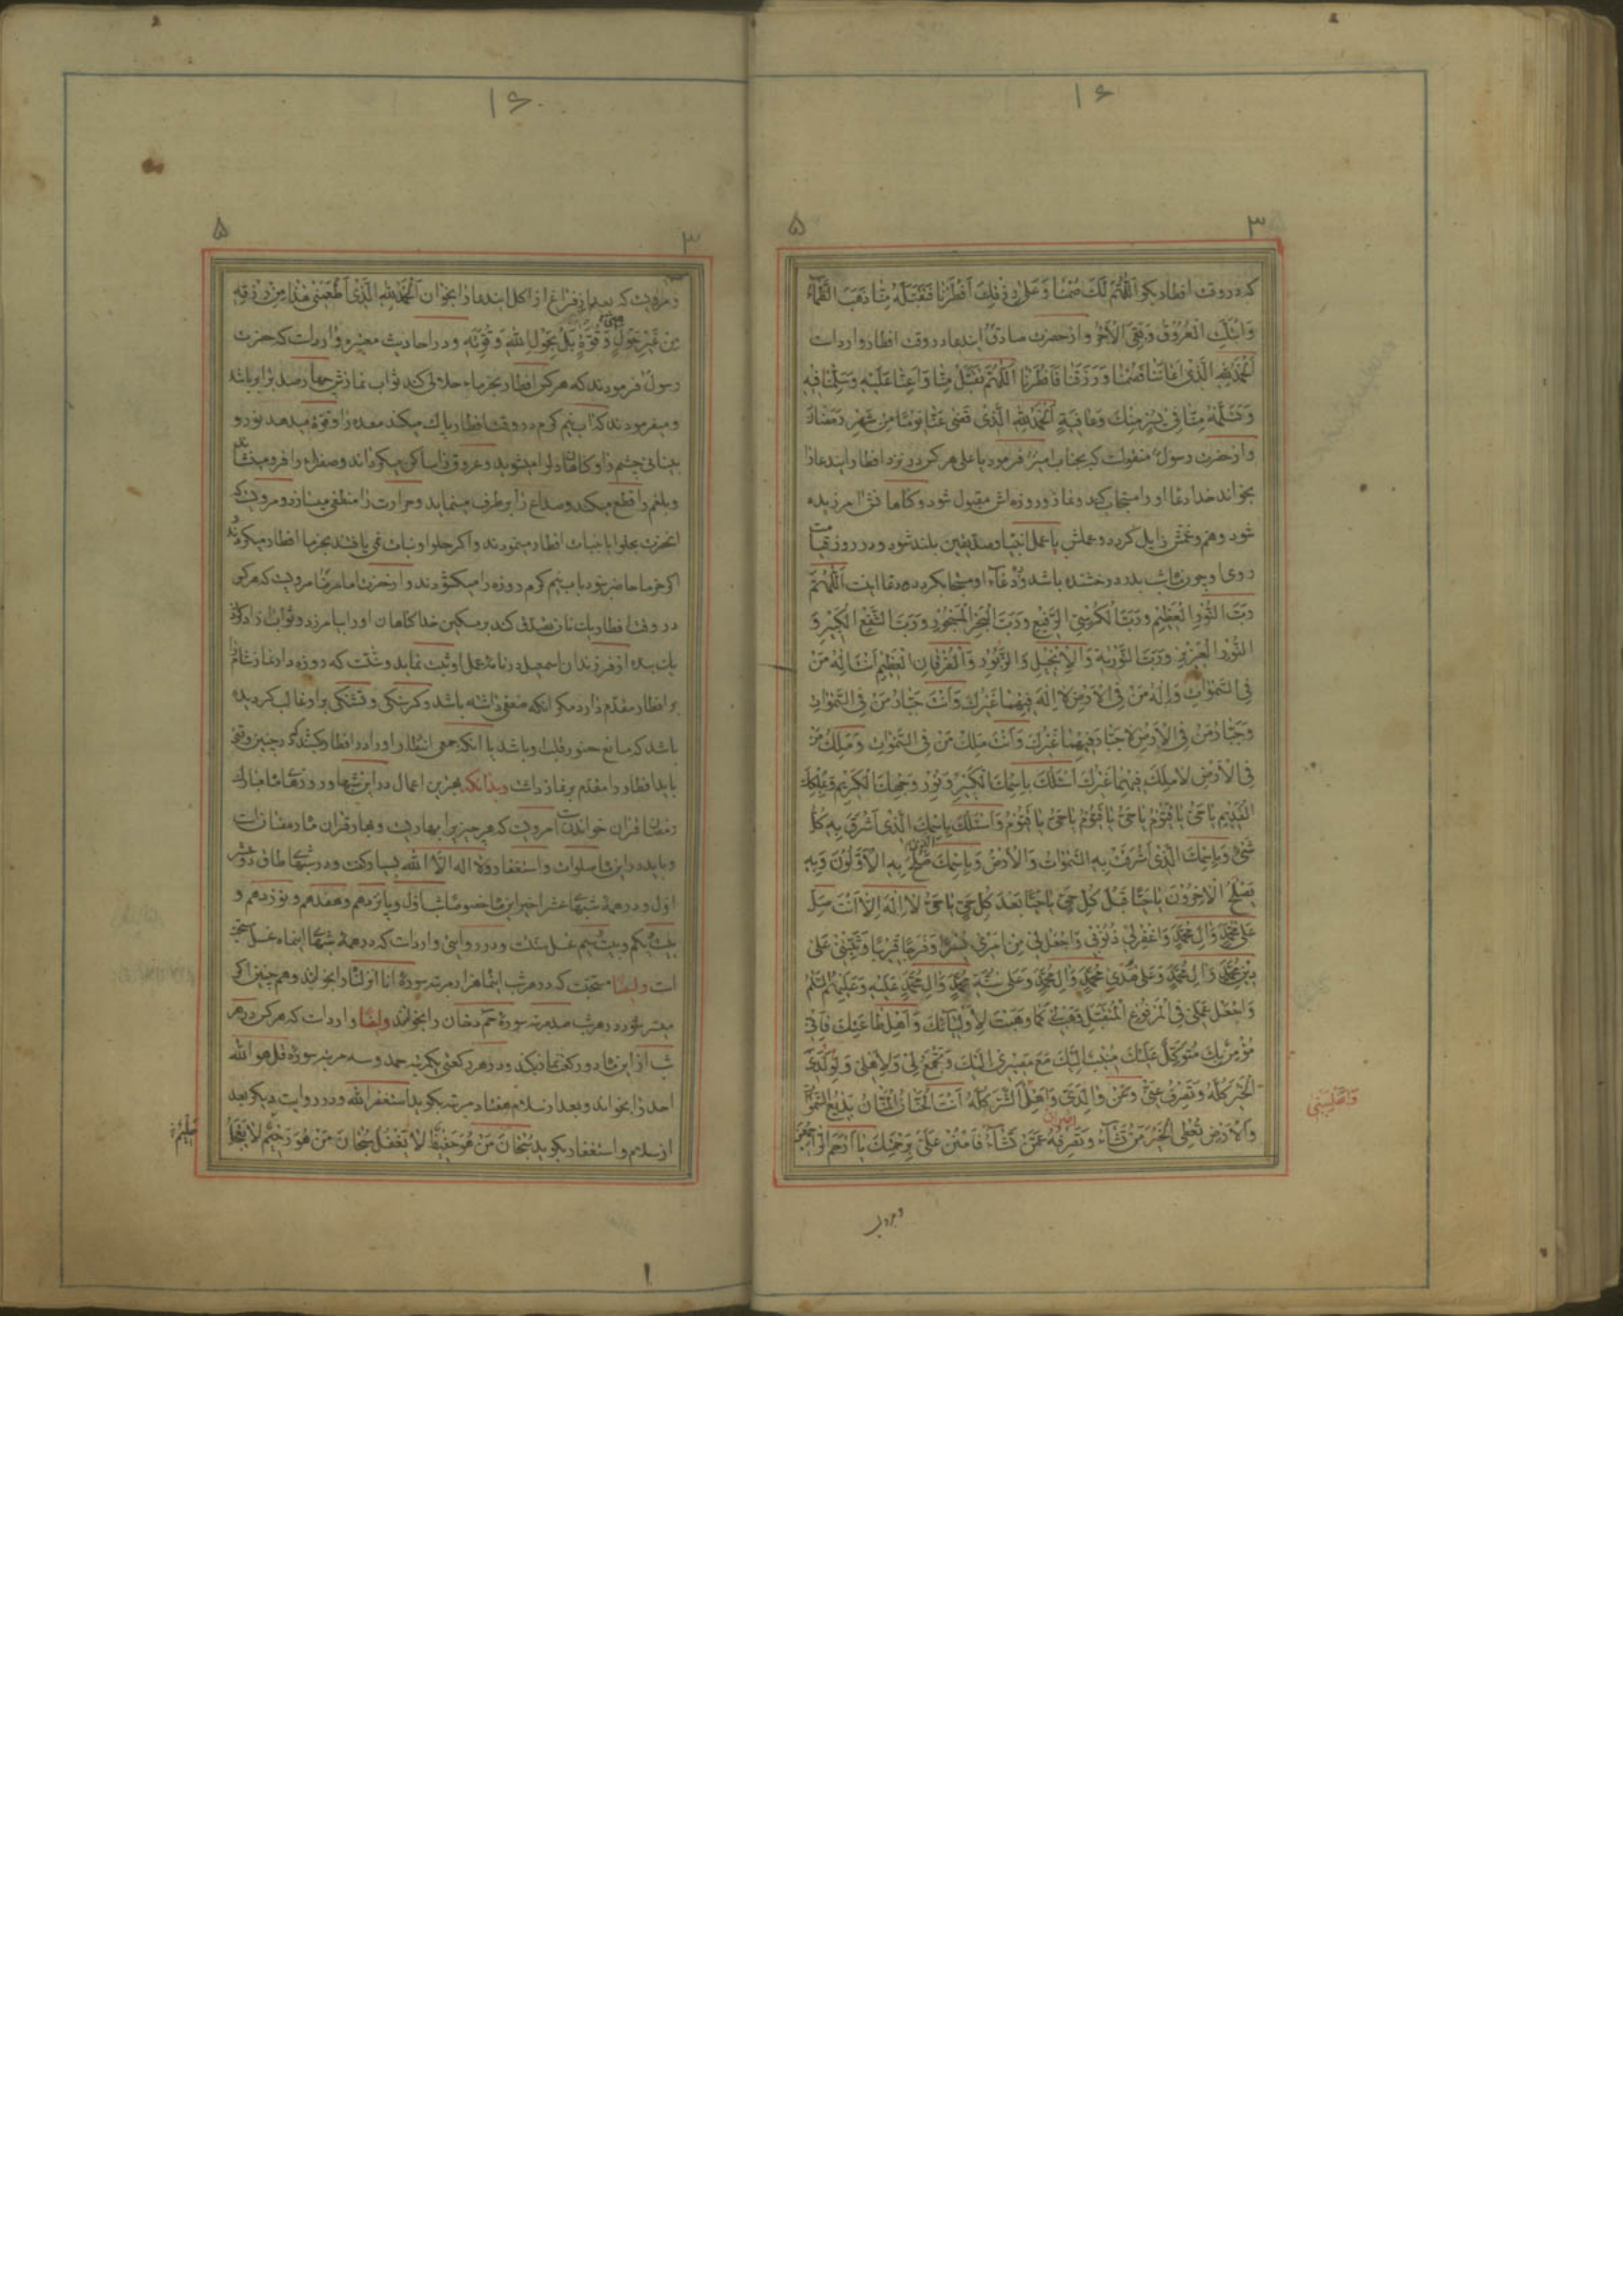 که در وقت افطار بکو اللّٰهُمَّ لَكَ صُمْنَا وَعَلىٰ رِزْقِكَ اَفْطَرْنَا فَتَقَبَّلْهُ مِنَّا ذَهَبَ الظَّمَاءُ
وَابْتَلَّتِ الْعُرُوقُ وَبَقِىَ الْاَجْرُ وازحضرت صادق ایندعا در وقت افطار وارداست
اَلْحَمْدُ لِلّٰهِ الَّذى اَعَانَنَا فَصُمْنَا وَرَزَقَنَا فَاَفْطَرْنَا اَللّٰهُمَّ تَقَبَّلْ مِنَّا وَاَعِنَّا عَلَيْهِ وَسَلِّمْنَا فِيهِ
وَتَسَلَّمْهُ مِنَّا فى يُسْرٍ مِنْكَ وَعَافِيَةٍ اَلْحَمْدُ لِلّٰهِ الَّذى قَضىٰ عَنَّا يَوْمًا مِنْ شَهْرِ رَمَضَانَ
وازحضرت رسول منقولست که بجناب امیر فرمود یا علی هر کس در نزد افطار ایندعا را
بخواند خدا دعا او را مستجاب کند ونماز وروزه اش مقبول شود وکناهانش امرزیده
شود وهم وغمش زایل کردد وعملش با عمل انبیا وصدیقین بلند شود ودر روز قیامت
روی او چون شب بدر درخشنده باشد و دعاء او مستجاب کردد دعا اینست اَللّٰهُمَّ
رَبَّ النُّورِ الْعَظِيمِ وَرَبَّ الْكُرْسِىِّ الرَّفِيعِ وَرَبَّ الْبَحْرِ الْمَسْجُورِ وَرَبَّ الشَّفْعِ الْكَبِيْرِ وَ
النُّورِ الْعَزِيزِ وَرَبَّ التَّوْرٰيةِ وَالْاِنْجِيْلِ وَالزَّبُورِ وَالْفُرْقَانِ الْعَظِيمِ اَنْتَ اِلٰهُ مَنْ
فِى السَّمٰوَاتِ وَاِلٰهُ مَنْ فِى الْاَرْضِ لَا اِلٰهَ فِيْهِمَا غَيْرُكَ وَاَنْتَ جَبَّارُ مَنْ فِى السَّمٰوَاتِ
وَجَبَّارُ مَنْ فِى الْاَرْضِ لَا جَبَّارَ فِيْهِمَا غَيْرُكَ وَاَنْتَ مَلِكُ مَنْ فِى السَّمٰوَاتِ وَمَلِكُ مَنْ
فِى الْاَرْضِ لَا مَلِكَ فِيْهِمَا غَيْرُكَ اَسْئَلُكَ بِاسْمِكَ الْكَبِيْرِ وَنُورِ وَجْهِكَ الْكَرِيمِ وَمُلْكِكَ
الْقَدِيمِ يَا حَىُّ يَا قَيُّومُ يَا حَىُّ يَا قَيُّومُ يَا حَىُّ يَا قَيُّومُ وَاَسْئَلُكَ بِاسْمِكَ الَّذى اَشْرَقَ بِهِ كُلُّ
شَىْءٍ وَبِاسْمِكَ الَّذى اَشْرَقَتْ بِهِ السَّمٰوَاتُ وَالْاَرْضُ وَبِاسْمِكَ الَّذى صَلَحَ بِهِ الْاَوَّلُونَ وَبِهِ
يَصْلَحُ الْاٰخِرُوْنَ يَا حَيًّا قَبْلَ كُلِّ حَىٍّ يَا حَيًّا بَعْدَ كُلِّ حَىٍّ يَا حَىُّ لَا اِلٰهَ اِلَّا اَنْتَ صَلِّ
عَلىٰ مُحَمَّدٍ وَاٰلِ مُحَمَّدٍ وَاغْفِرْلى ذُنُوبى وَاجْعَلْ لى مِنْ اَمْرِى يُسْرًا وَفَرَجًا قَرِيبًا وَثَبِّتْنى عَلىٰ
دِيْنِ مُحَمَّدٍ وَاٰلِ مُحَمَّدٍ وَعَلىٰ هُدىٰ مُحَمَّدٍ وَاٰلِ مُحَمَّدٍ وَعَلىٰ سُنَّةِ مُحَمَّدٍ وَاٰلِ مُحَمَّدٍ عَلَيْهِ وَعَلَيْهِمُ السَّلَامُ
وَاجْعَلْ عَمَلى فِى الْمَرْفُوعِ الْمُتَقَبَّلِ وَهَبْ لى كَمَا وَهَبْتَ لِاَوْلِيَائِكَ وَاَهْلِ طَاعَتِكَ فَاِنّى
مُؤْمِنٌ بِكَ مُتَوَكِّلٌ عَلَيْكَ مُنِيبٌ اِلَيْكَ مَعَ مَصِيْرى اِلَيْكَ وَتَجْمَعُ لى وَلِاَهْلى وَلِوَلَدى
الْخَيْرَ كُلَّهُ وَتَصْرِفُ عَنّى وَعَنْ وَالِدَىَّ وَاَهْلى الشَّرَّ كُلَّهُ اَنْتَ الْحَنَّانُ الْمَنَّانُ بَدِيعُ السَّمٰوَاتِ
وَالْاَرْضِ تُعْطِى الْخَيْرَ مَنْ تَشَاءُ وَتَصْرِفُهُ عَمَّنْ تَشَاءُ فَامْنُنْ عَلَىَّ بِرَحْمَتِكَ يَا اَرْحَمَ الرَّاحِمِيْنَ
ومرویست که بعد از فراغ از اکل ایندعا را بخوان اَلْحَمْدُ لِلّٰهِ الَّذى اَطْعَمَنى هٰذَا مِنْ رِزْقِهِ
مِنْ غَيْرِ حَوْلٍ مِنّى وَقُوَّةٍ بَلْ بِحَوْلِ اللّٰهِ وَقُوَّتِهِ ودر احادیث معتبره وارداست که حضرت
رسول فرمودند که هر کس افطار بخرماء حلالی کند ثواب نمازش چهار صد برابر باشد
ومیفرمودند که اب نیم کرم در وقت افطار پاك میکند معده را وقوة میدهد نور و
بینائی چشم را وکناهان را میشوید وعروق را ساکن میکرداند وصفراء را فرو مینشاند
وبلغم را قطع میکند وصداع را برطرف مینماید وحرارت را منطفی میسازد ومرویست که
انحضرت بحلوا یا نبات افطار مینمودند واکر حلوا ونبات نمی یافتند بخرما افطار میکردند
اکر خرما حاضر نبود باب نیم کرم روزه را میکشودند وازحضرت امام رضا مرویست که هر کس
در وقت افطار یك نان تصدق کند بر مسکین خدا کناهان او را بیامرزد وثواب ازاد کردن
یك بنده از فرزندان اسمعیل در نامه عمل او ثبت نماید وسنت است که روزه دار نماز شام را
بر افطار مقدم دارد مکر انکه ضعفی داشته باشد وکرسنکی وتشنکی بر او غالب کردیده
باشد که مانع حضور قلب او باشد یا انکه جمعی انتظار او را در افطار کشند که در چنین وقتی
باید افطار را مقدم بر نماز داشت وبدانکه بهترین اعمال در این شبها وروزهای ماه مبارك
رمضان قران خواندنست مرویست که هر چیز را بهاریست وبهار قران ماه رمضان است
وباید در این ماه صلوات واستغفار ولا اله الا الله بسیار کفت ودر شبهای طاق
اول ودر همه شبهای عشر اخیر این ماه خصوصا شب اول وپانزدهم وهفدهم ونوزدهم و
بیست ویکم وبیست وسیم غسل سنت است ودر روایتی وارداست که در همه شبهای اینماه غسل سنت
است وایضا سنت است که در هر شب اینماه هزار مرتبه سورۀ انا انزلناه را بخوانند وهم چنین اکر
میسر شود در هر شب صد مرتبه سورۀ حم دخان را بخوانند وایضا وارداست که هر کس در هر
شب از این ماه دو رکعت نماز بکند ودر هر رکعتی یکمرتبه حمد وسه مرتبه سورۀ قل هو الله
احد را بخواند وبعد از سلام هفتاد مرتبه بکوید استغفر الله ودر روایت دیکر بعد
از سلام واستغفار بکوید سُبْحَانَ مَنْ هُوَ حَفِيظٌ لَا يَغْفُلُ سُبْحَانَ مَنْ هُوَ رَحِيمٌ لَا يَعْجَلُ